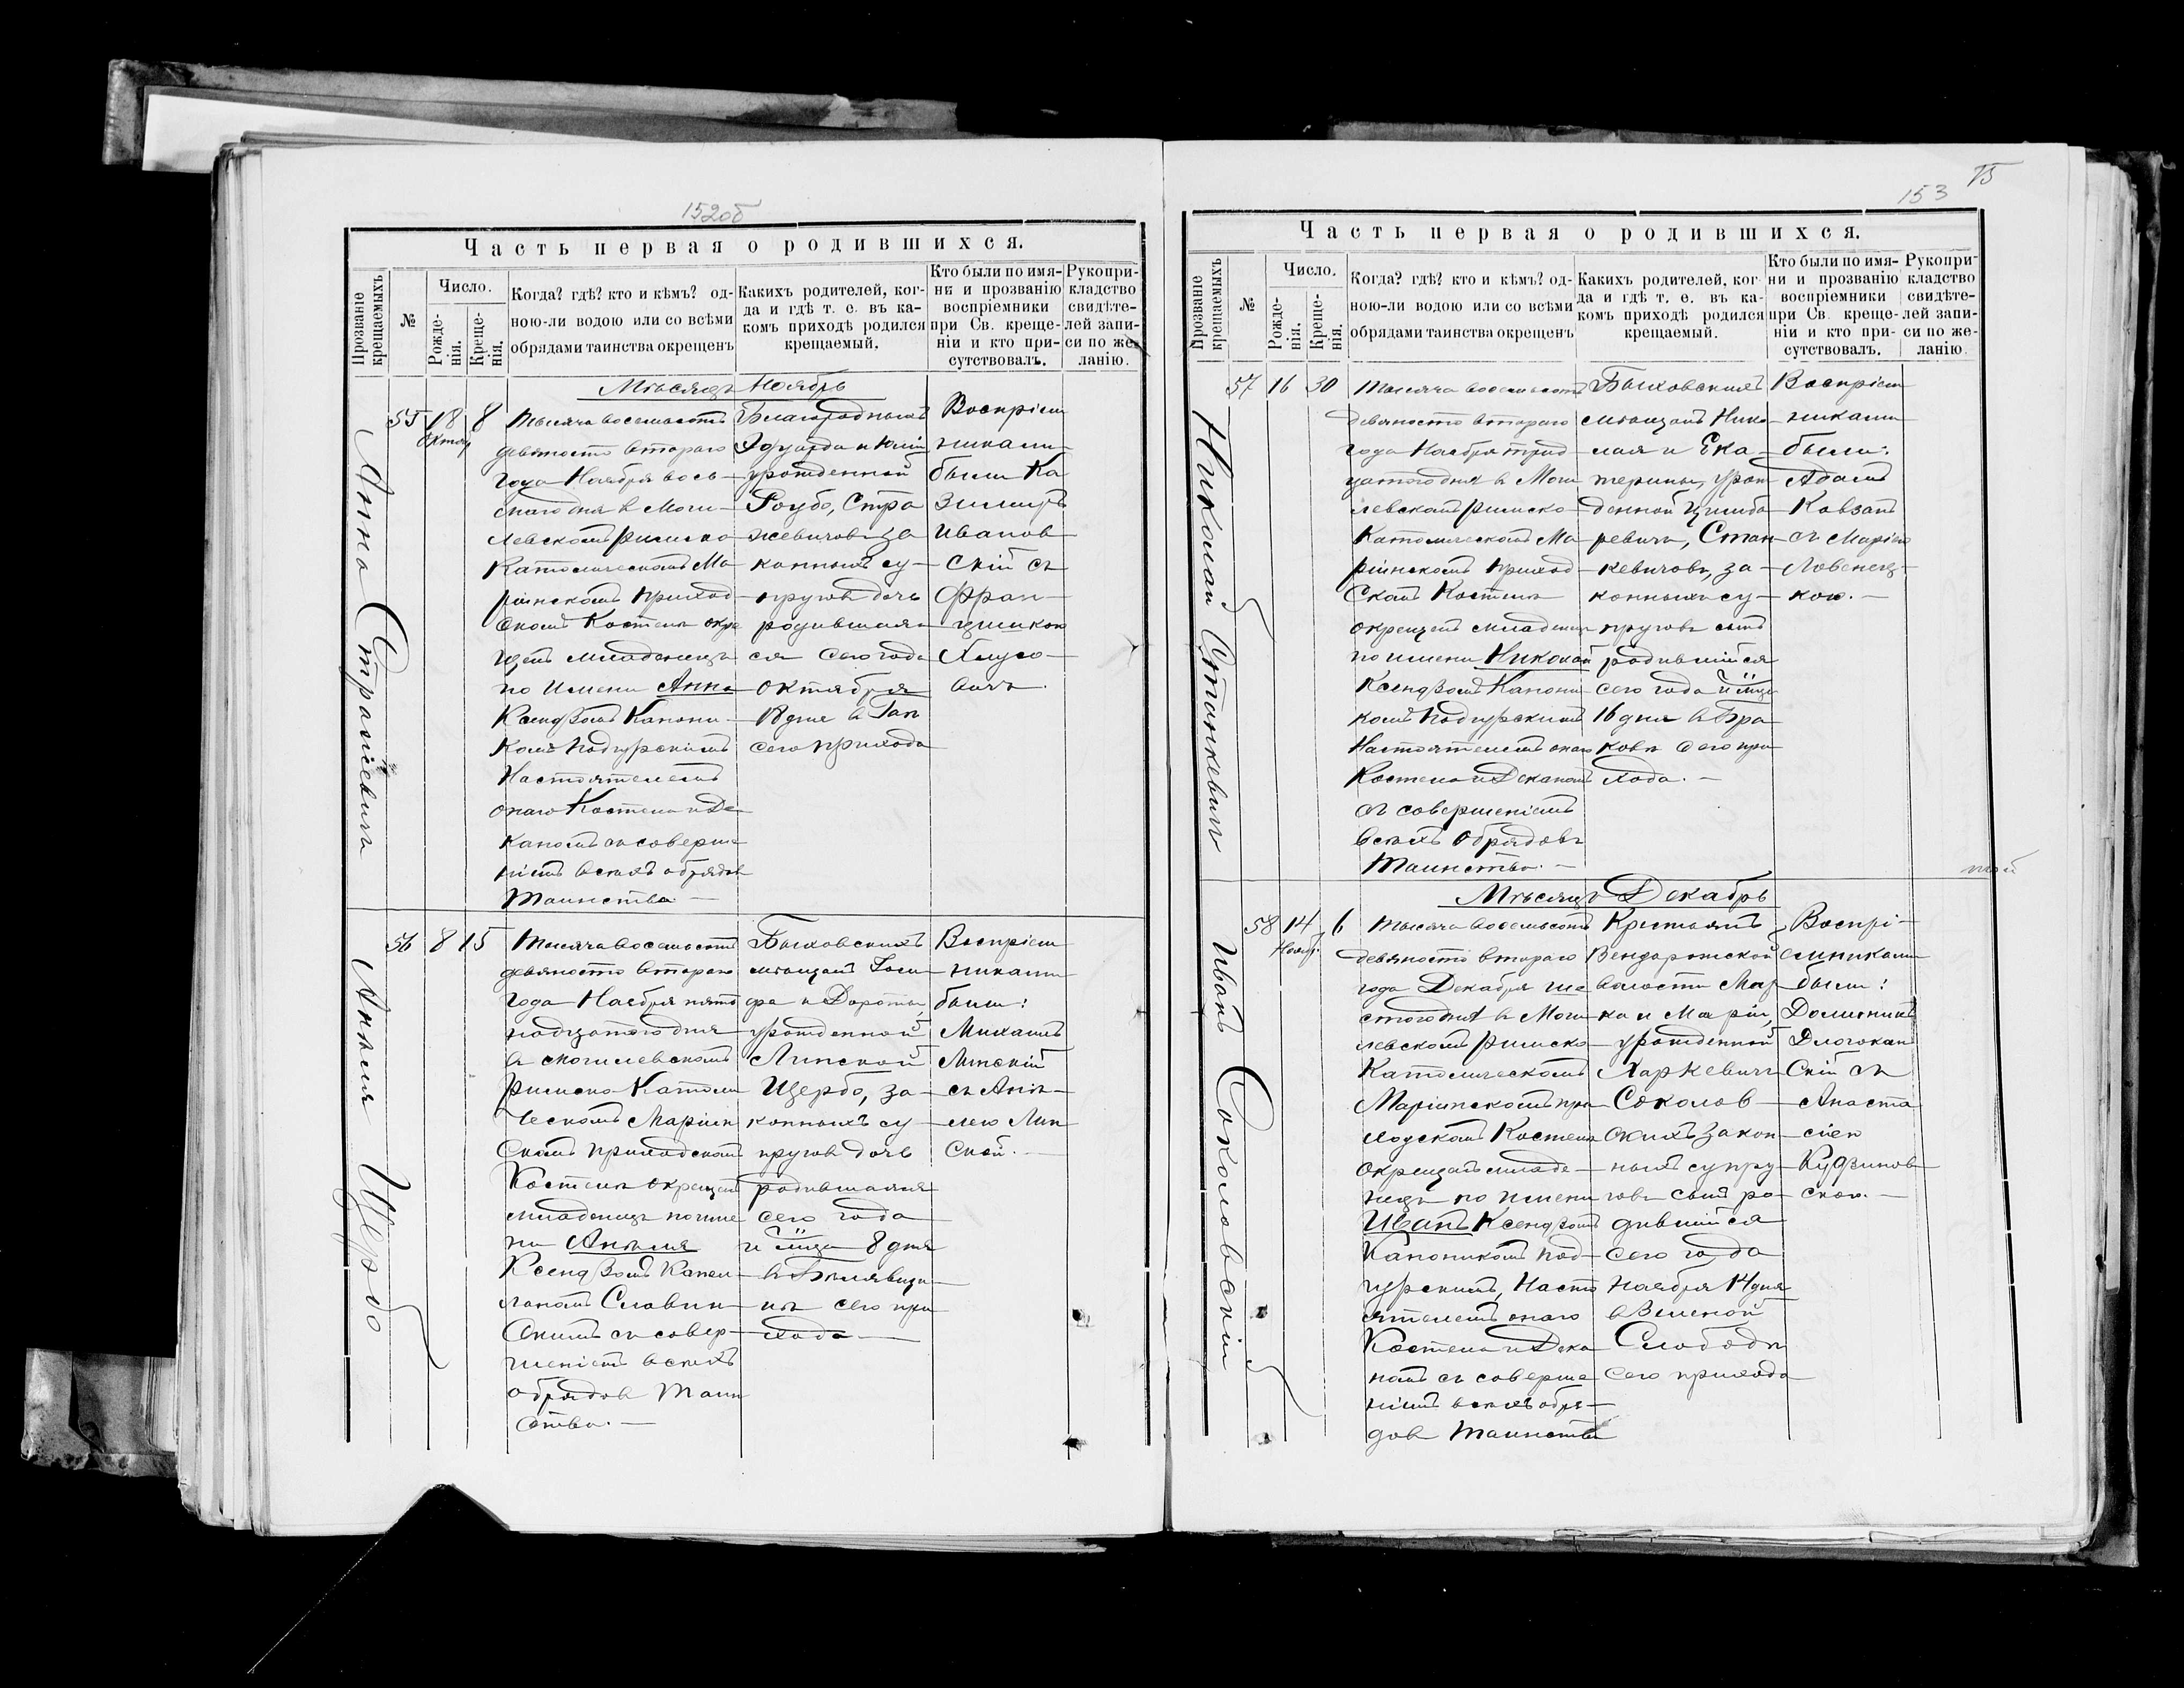 152об
Часть первая о родившихся.
Прозваніе крещаемыхъ
№
Число.
Рожде-
нія.
Креще-
нія.
Когда? гдѣ? кто и кѣмъ? од-
ною-ли водою или со всѣми
обрядами таинства окрещенъ
Какихъ родителей, ког-
да и гдѣ т. е. въ ка-
комъ приходѣ родился
крещаемый.
Кто были по имя-
ни и прозванію
воспріемники
при Св. креще-
ніи и кто при-
сутствовалъ.
Рукопри-
кладство
свидѣте-
лей запи-
си по же-
ланію.
Мѣсяцъ Ноябрь
Анна Стражевичъ
55 18 8
Октяб
Тысяча восемьсотъ
девяносто втораго
года Ноября вось-
маго дня в Моги-
левскомъ римско
Католическомъ Ма-
ріинскомъ приход-
скомъ Костелѣ окре
щенъ младенецъ
по имени Анна
Ксендзомъ Канони-
комъ Подгурскимъ
Настоятелемъ
онаго Костела и Де-
каномъ съ соверше
ніемъ всѣхъ обрядов
Таинства —
Благородныхъ
Эдуарда и Юліи
урожденной
Роубо, Стра
жевичовъ за
конныхъ су-
пруговъ дочь
родившая-
ся сего года
Октября
18 дня в Гап
сего прихода
Воспріем
никами
были Ка
зимиръ
Иванов-
скій съ
Фран-
цишкою
Хмуро-
вичъ.
Анѣля Щербо
56 8 15
Тысяча восемьсотъ
девяносто втораго
года Ноября пят-
надцатого дня
в Могилевскомъ
римско Католи
ческомъ Маріин
скомъ приходскомъ
Костелѣ окрещен
младенецъ по име
ни Анѣля
Ксендзомъ Капел-
ланомъ Славин-
скимъ съ совер-
шеніемъ всѣхъ
обрядов Таин
ства. —
Быховскихъ
мѣщанъ Iоси
фа и Дороты,
урожденной
Липской
Щербо, за-
конныхъ су-
пруговъ дочь
родившаяся
сего года
и м-ца 8 дня
сего при
хода —
Воспріем
никами
были:
Михаилъ
Липскій
съ Анѣ-
лею Лип
ской. —
153
75
Часть первая о родившихся.
Прозваніе крещаемыхъ
№
Число.
Рожде-
нія.
Креще-
нія.
Когда? гдѣ? кто и кѣмъ? од-
ною-ли водою или со всѣми
обрядами таинства окрещенъ
Какихъ родителей, ког-
да и гдѣ т. е. въ ка-
комъ приходѣ родился
крещаемый.
Кто были по имя-
ни и прозванію
воспріемники
при Св. креще-
ніи и кто при-
сутствовалъ.
Рукопри-
кладство
свидѣте-
лей запи-
си по же-
ланію.
Николай Станкевичъ
57 16 30
Тысяча восемьсотъ
девяносто втораго
года Ноября трид-
цатого дня в Моги
левскомъ римско-
Католическомъ Ма-
ріинскомъ приход-
скомъ Костелѣ
окрещенъ младенец
по имени Николай
Ксендзомъ Канони-
комъ Подгурскимъ
Настоятелемъ онаго
Костела и Деканомъ
съ совершеніемъ
всѣхъ обрядовъ
Таинства. —
Быховскихъ
мѣщанъ Нико-
лая и Ека-
терины, урож
денной Цимбо
ревичъ, Стан-
кевичовъ, за-
конныхъ су-
пруговъ сынъ
родившійся
сего года и м-ца
16 дня в Бра
ковѣ сего при
хода. —
Воспріем
никами
были:
Адамъ
Ковзанъ
съ Маріею
Ловенец-
кою. —
Мѣсяцъ Декабрь
Иванъ Соколовскій
58 14 6
Ноябр.
Тысяча восемьсотъ
девяносто втораго
года Декабря ше
стого дня в Моги
левскомъ римско-
Католическомъ
Маріинскомъ при-
ходскомъ Костелѣ
окрещенъ младе-
нецъ по имени
Иванъ Ксендзомъ
Каноникомъ Под-
гурскимъ, Насто
ятелемъ онаго
Костела и Дека
номъ съ соверше
ніемъ всѣхъ обря-
довъ Таинства
Крестьянъ
Вендорожской
волости Мар
ка и Маріи,
урожденной
Харкевичъ
Соколов-
скихъ закон-
ныхъ супру-
говъ сынъ ро-
дившійся
сего года
Ноября 14 дня
в Зеленой
Слободѣ
сего прихода
Воспрі-
емниками
были:
Доминикъ
Длогокан
скій съ
Анаста
сіею
Куфинов-
скою. —